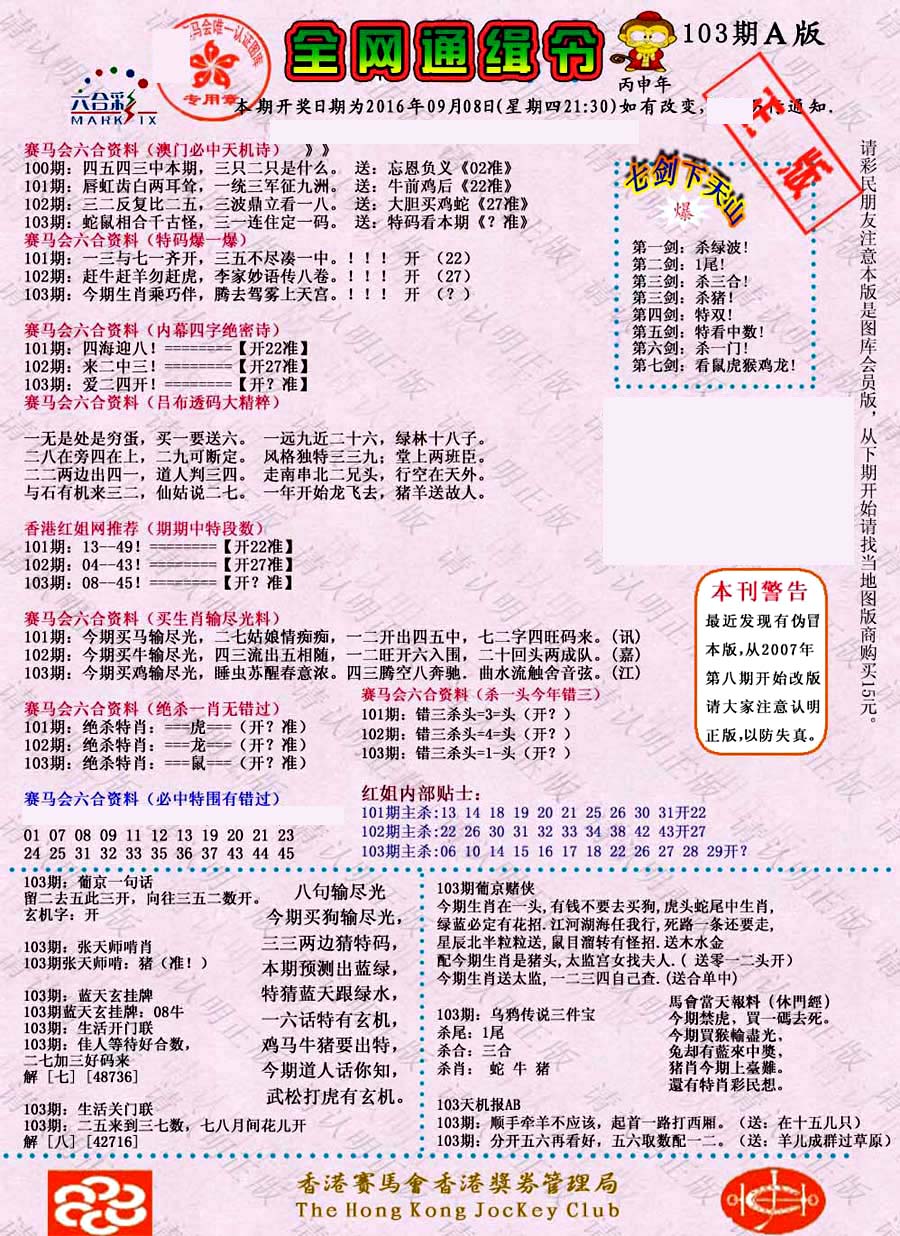 全网通缉令
103期A版
丙申年
六合彩
MARK SIX
专用章
正版
本期开奖日期为2016年09月08日(星期四21:30)如有改变,
通知.
赛马会六合资料（澳门必中天机诗） 》》
100期：四五四三中本期，三只二只是什么。 送：忘恩负义《02准》
101期：唇虹齿白两耳耸，一统三军征九洲。 送：牛前鸡后《22准》
102期：三二反复比二五，三波鼎立看一八。 送：大胆买鸡蛇《27准》
103期：蛇鼠相合千古怪，三一连住定一码。 送：特码看本期《？准》
赛马会六合资料（特码爆一爆）
101期：一三与七一齐开，三五不尽凑一中。！！！ 开 （22）
102期：赶牛赶羊勿赶虎，李家妙语传八卷。！！！ 开 （27）
103期：今期生肖乘巧伴，腾去驾雾上天宫。！！！ 开 （？）
赛马会六合资料（内幕四字绝密诗）
101期：四海迎八！========【开22准】
102期：来二中三！========【开27准】
103期：爱二四开！========【开？准】
赛马会六合资料（吕布透码大精粹）
一无是处是穷蛋，买一要送六。 一远九近二十六，绿林十八子。
二八在旁四在上，二九可断定。 风格独特三三九；堂上两班臣。
二二两边出四一，道人判三四。 走南串北二兄头，行空在天外。
与石有机来三二，仙姑说二七。 一年开始龙飞去，猪羊送故人。
香港红姐网推荐（期期中特段数）
101期：13--49！========【开22准】
102期：04--43！========【开27准】
103期：08--45！========【开？准】
赛马会六合资料（买生肖输尽光料）
101期：今期买马输尽光，二七姑娘情痴痴，一二开出四五中，七二字四旺码来。(讯)
102期：今期买牛输尽光，四三流出五相随，一二旺开六入围，二十回头两成队。(嘉)
103期：今期买鸡输尽光，睡虫苏醒春意浓。四三腾空八奔驰．曲水流触舍音弦。(江)
赛马会六合资料（绝杀一肖无错过）
101期：绝杀特肖：===虎===（开？准）
102期：绝杀特肖：===龙===（开？准）
103期：绝杀特肖：===鼠===（开？准）
赛马会六合资料（杀一头今年错三）
101期：错三杀头=3=头（开？）
102期：错三杀头=4=头（开？）
103期：错三杀头=1-头（开？）
赛马会六合资料（必中特围有错过）
01 07 08 09 11 12 13 19 20 21 23
24 25 31 32 33 35 36 37 43 44 45
红姐内部贴士：
101期主杀:13 14 18 19 20 21 25 26 30 31开22
102期主杀:22 26 30 31 32 33 34 38 42 43开27
103期主杀:06 10 14 15 16 17 18 22 26 27 28 29开？
七剑下天山
爆
第一剑：杀绿波！
第二剑：1尾！
第三剑：杀三合！
第三剑：杀猪！
第四剑：特双！
第五剑：特看中数！
第六剑：杀一门！
第七剑：看鼠虎猴鸡龙！
本刊警告
最近发现有伪冒
本版,从2007年
第八期开始改版
请大家注意认明
正版,以防失真。
请彩民朋友注意本版是图库会员版，从下期开始请找当地图版商购买15元。
103期：葡京一句话
留二去五此三开，向往三五二数开。
玄机字：开
103期：张天师啃肖
103期张天师啃：猪（准！）
103期：蓝天玄挂牌
103期蓝天玄挂牌：08牛
103期：生活开门联
103期：佳人等待好合数，
二七加三好码来
解［七］[48736]
103期：生活关门联
103期：二五来到三七数，七八月间花儿开
解［八］[42716]
八句输尽光
今期买狗输尽光，
三三两边猜特码，
本期预测出蓝绿，
特猜蓝天跟绿水，
一六话特有玄机，
鸡马牛猪要出特，
今期道人话你知，
武松打虎有玄机。
103期葡京赌侠
今期生肖在一头,有钱不要去买狗,虎头蛇尾中生肖,
绿蓝必定有花招.江河湖海任我行,死路一条还要走,
星辰北半粒粒送,鼠目溜转有怪招.送木水金
配今期生肖是猪头,太监宫女找夫人.(送零一二头开）
今期生肖送太监,一二三四自己查.(送合单中)
103期：乌鸦传说三件宝
杀尾：1尾
杀合：三合
杀肖： 蛇 牛 猪
馬會當天報料（休門經）
今期禁虎，買一碼去死。
今期買猴輸盡光，
兔却有藍來中獎，
豬肖今期上臺難。
還有特肖彩民想。
103天机报AB
103期：顺手牵羊不应该，起首一路打西厢。（送：在十五儿只）
103期：分开五六再看好，五六取数配一二。（送：羊儿成群过草原）
香港賽馬會香港獎券管理局
The Hong Kong JocKey Club